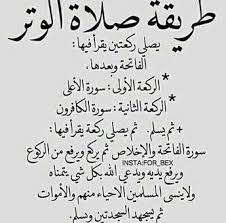 طريقة صلاة الوتر
يصلي ركعتين يقرأ فيها:
الفاتحة وبعدها،
*الركعة الأولى: سورة الأعلى
*الركعة الثانية: سورة الكافرون
+ ثم يسلم. ثم يصلي ركعة يقرأ فيها:
سورة الفاتحة والإخلاص ثم يركع ويرفع من الركوع
INSTA:FOR_BEX
ويرفع يديه ويدعي الله بكل شي يتمناه
ولاينسى المسلمين الاحياء منهم والأموات
ثم يسجهد السجدتين ويسلم.